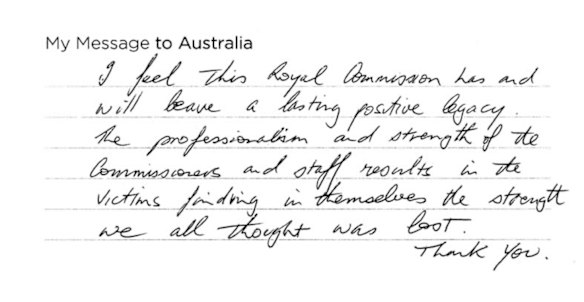 My Message to Australia
I feel this Royal Commission has and
will leave a lasting positive legacy.
The professionalism and strength of the
Commissioners and staff results in the
victims finding in themselves the strength
we all thought was lost.
Thank You.